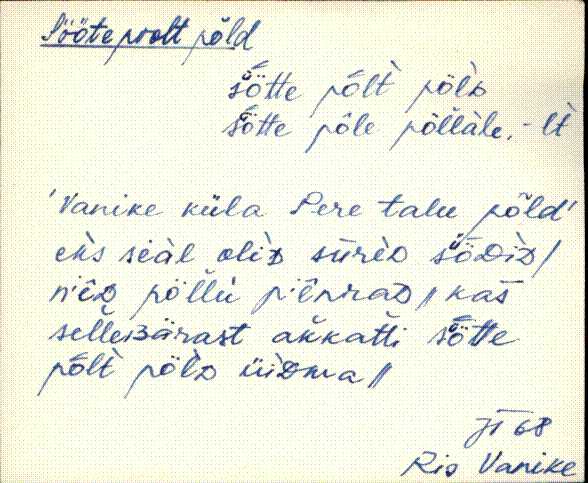 Söötepoolt põld
sȫ̆tte pȭlt̀ põlᴅ
sȫ̆tte pȭle põllàle, -lt̀
'Vanike küla Pere talu põld'
eks seàl oliᴅ sūreᴅ sȫᴅiᴅ/
nieᴅ põllu pienraᴅ // kas
selleʙärast akkatti sȫ̆tte
pȭlt̀ põlᴅ üiᴅma //
JT 68
Ris Vanike